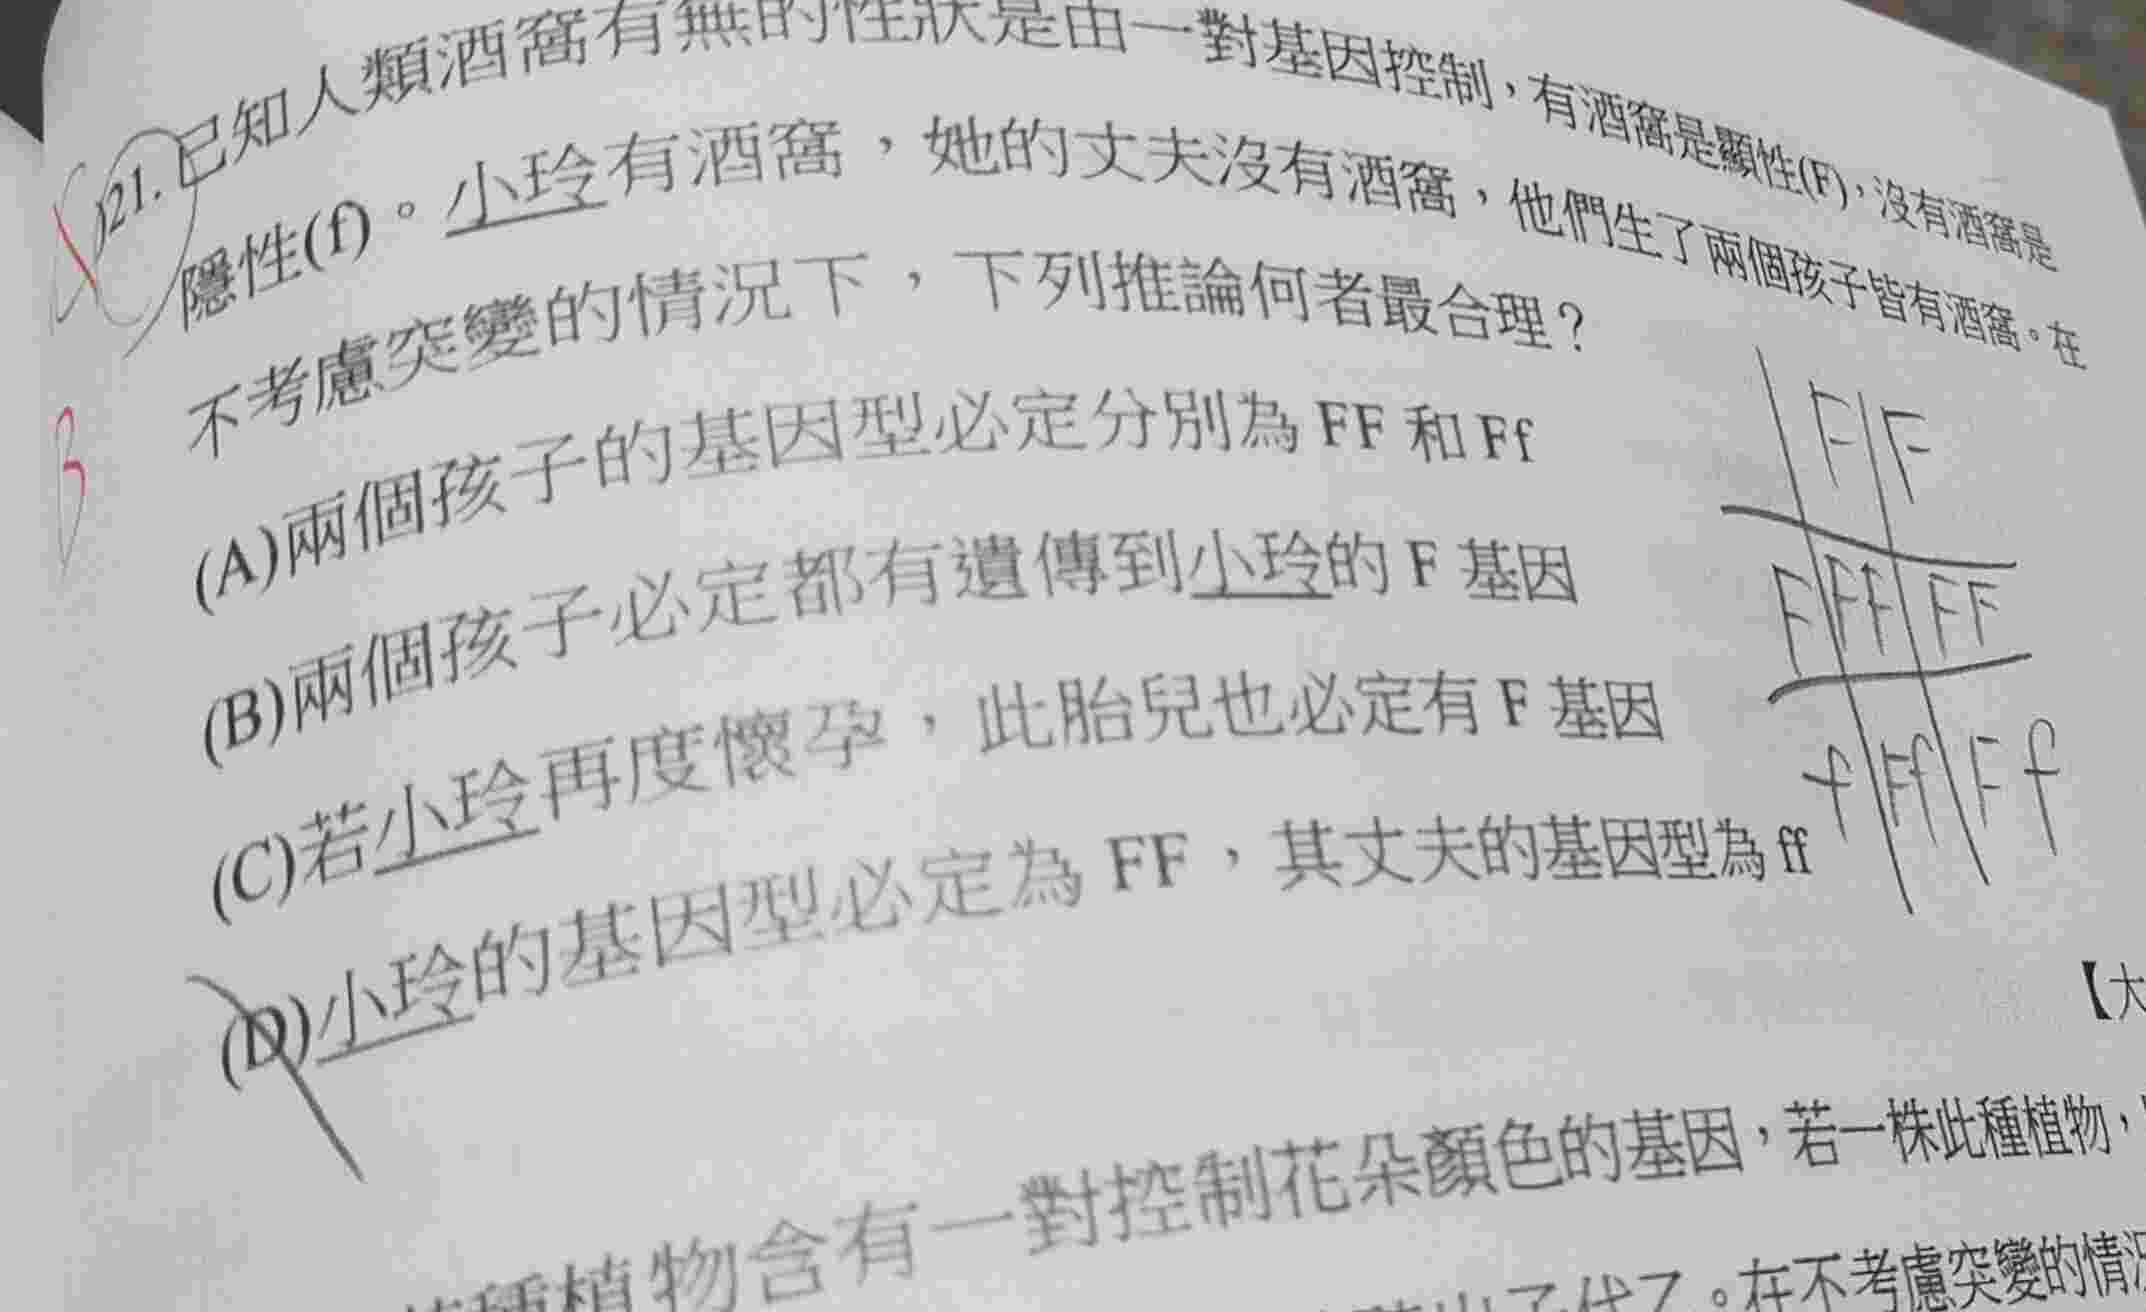 21.已知人類酒窩有無的性狀是由一對基因控制，有酒窩是顯性(F)，沒有酒窩是
隱性(f)。小玲有酒窩，她的丈夫沒有酒窩，他們生了兩個孩子皆有酒窩。在
不考慮突變的情況下，下列推論何者最合理？
(A)兩個孩子的基因型必定分別為 FF 和 Ff
(B)兩個孩子必定都有遺傳到小玲的 F 基因
(C)若小玲再度懷孕，此胎兒也必定有 F 基因
(D)小玲的基因型必定為 FF，其丈夫的基因型為 ff
B
F F
F FF FF
f Ff Ff
【大
種植物含有一對控制花朵顏色的基因，若一株此種植物，
。在不考慮突變的情況